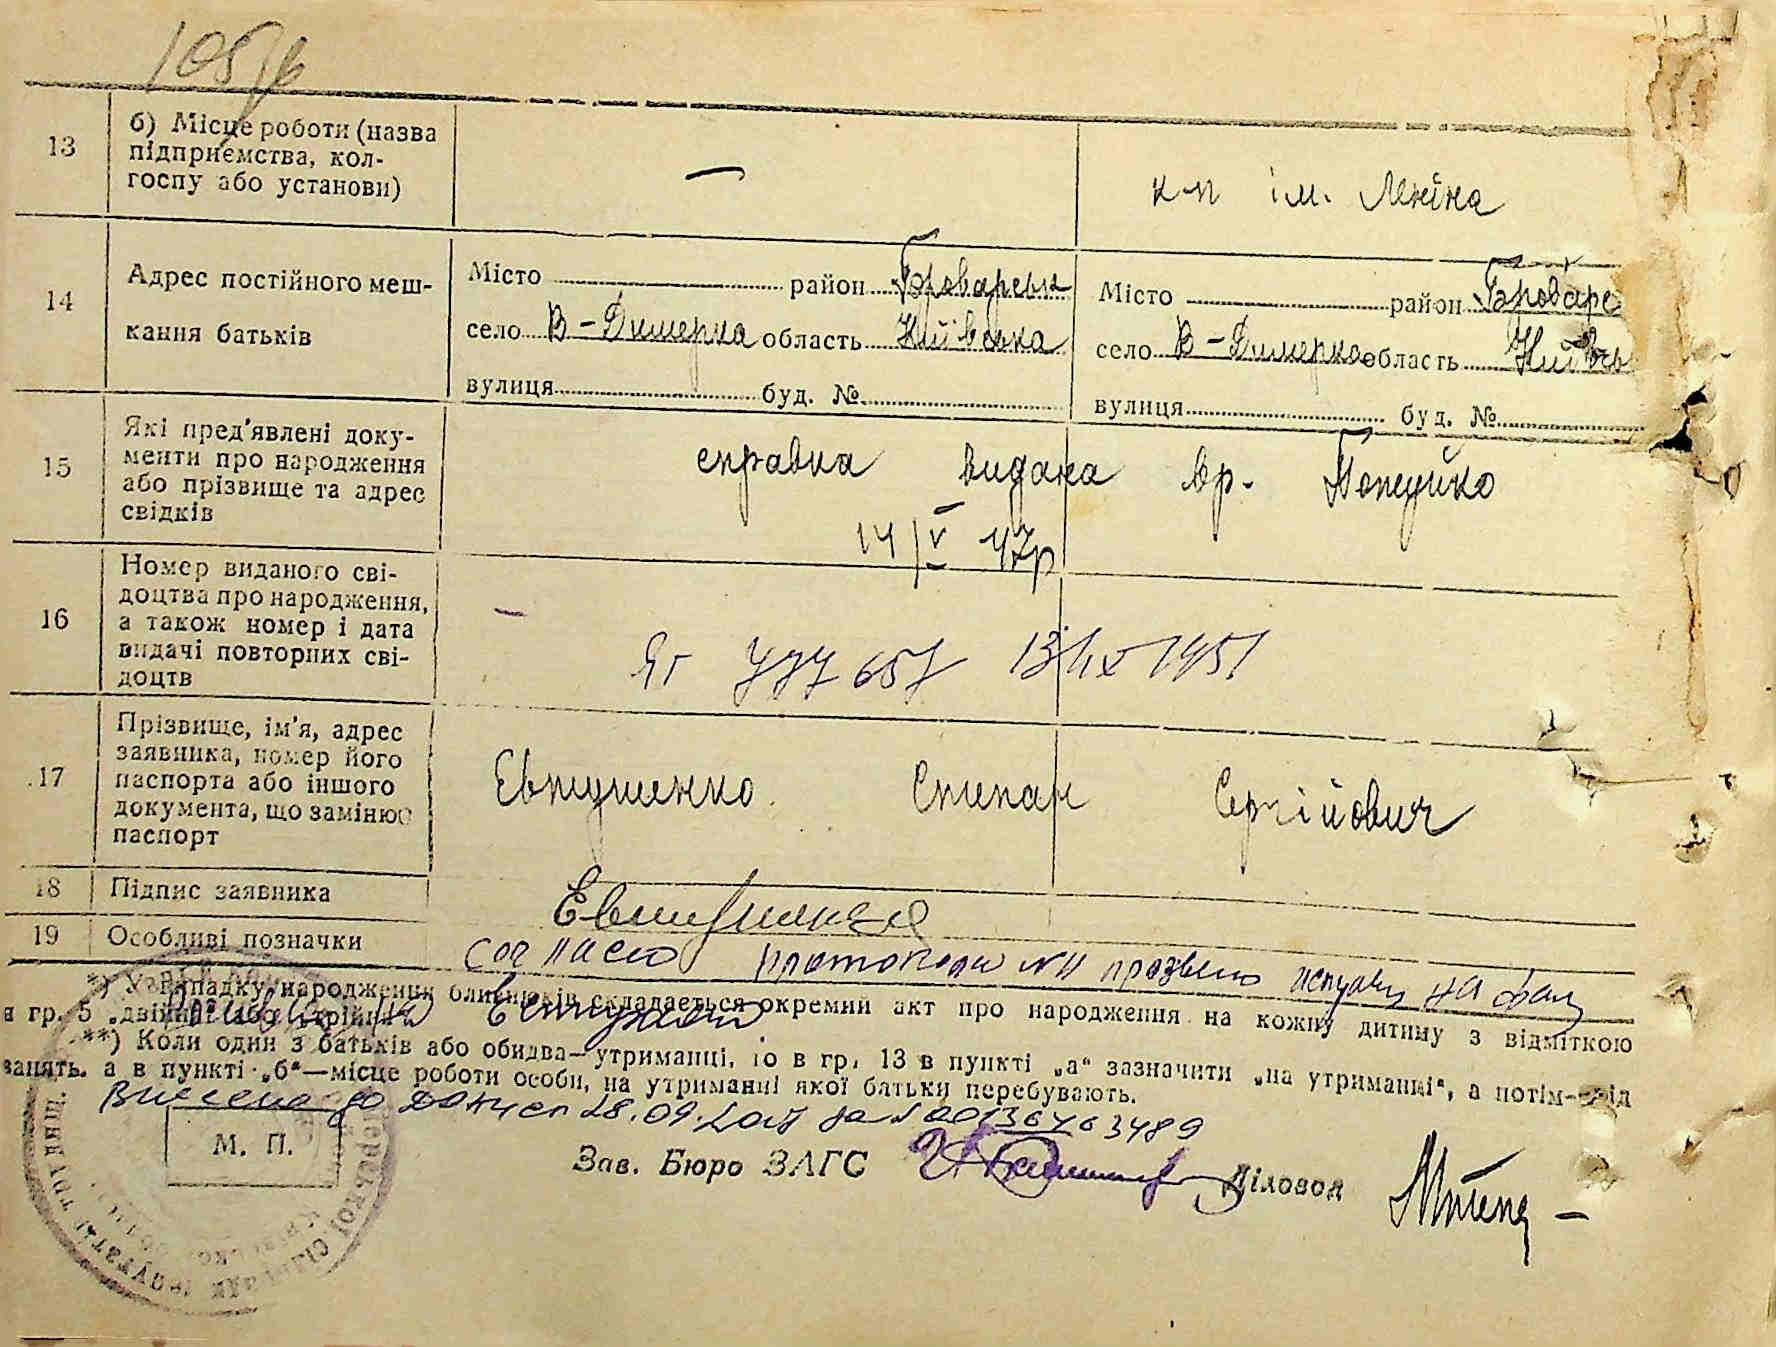 13
б) Місце роботи (назва
підприємства, кол-
госпу або установи)
—
к-п ім. Леніна
14
Адрес постійного меш-
кання батьків
Місто район
село В-Димерка область Київська
вулиця буд. №
Місто район Броваре
село В-Димерка область
вулиця буд. №
15
Які пред'явлені доку-
менти про народження
або прізвище та адрес
свідків
справка видана вр.
14/V 47р
16
Номер виданого сві-
доцтва про народження,
а також номер і дата
видачі повторних сві-
доцтв
–
ЯГ 777657 13/IX 1951
17
Прізвище, ім'я, адрес
заявника, номер його
паспорта або іншого
документа, що замінює
паспорт
Евтушенко Степан Сергійович
18
Підпис заявника
19
Особливі позначки
согласно протокола на
*) У випадку народження близнюків складається окремий акт про народження на кожну дитину з відміткою
в гр. 5 „двійня" або „трійня".
**) Коли один з батьків або обидва—утриманці, то в гр. 13 в пункті „а" зазначити „на утриманні", а потім—від
занять, а в пункті „б"—місце роботи особи, на утриманні якої батьки перебувають.
28.09.2017 за № 00136763489
М. П.
Зав. Бюро ЗАГС
Діловод